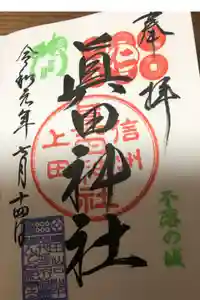 奉拝
眞田神社
信州
上田
不落の城
令和元年七月十四日